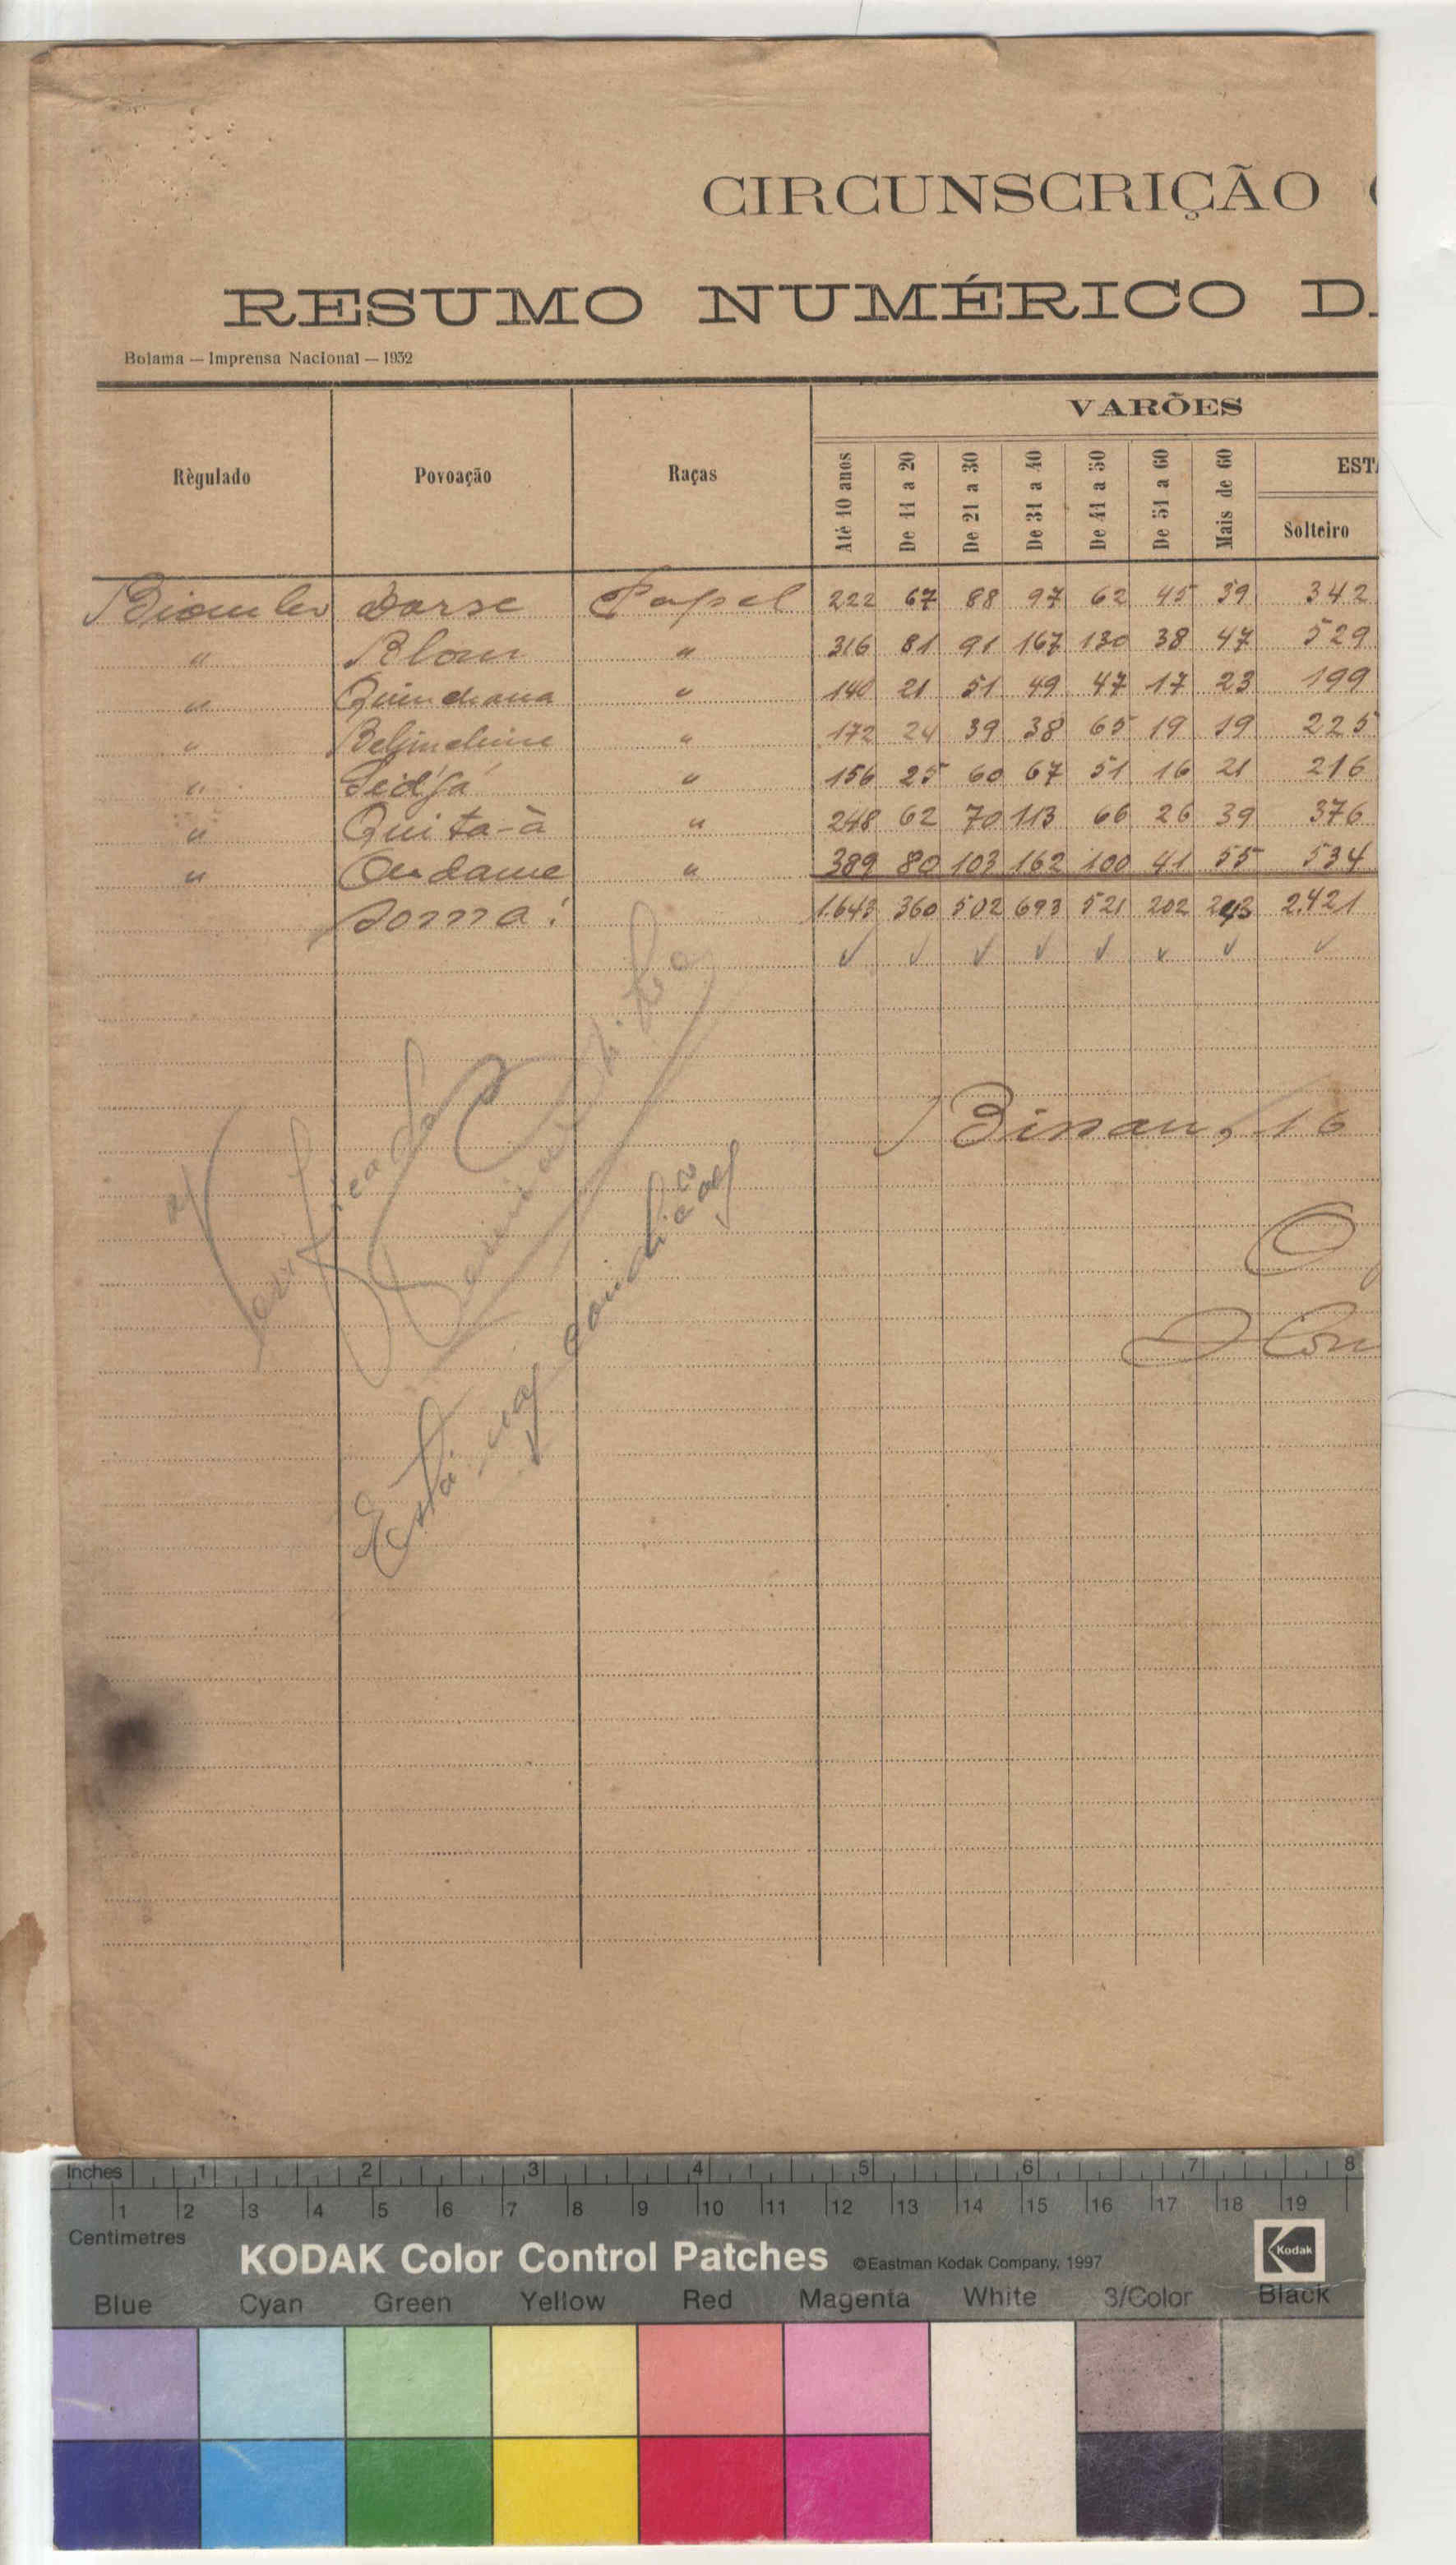 CIRCUNSCRIÇÃO
RESUMO NUMÉRICO
Bolama — Imprensa Nacional — 1932
VARÕES
Règulado Povoação Raças Até 10 anos De 11 a 20 De 21 a 30 De 31 a 40 De 41 a 50 De 51 a 60 Mais de 60 EST
Solteiro
Biombo Dorse Papel 222 67 88 97 62 45 39 342
" Blom " 316 81 91 167 130 38 47 529
" Quinchana " 140 21 51 49 47 17 23 199
" " 172 24 39 38 65 19 19 225
" " 156 25 60 67 51 16 21 216
" Quita-à " 248 62 70 113 66 26 39 376
" Ondame " 389 80 103 162 100 41 55 534
Soma: 1.643 360 502 693 521 202 243 2.421
Bissau, 16
O
Verificado
Está nas condições
Inches 1 2 3 4 5 6 7 8
1 2 3 4 5 6 7 8 9 10 11 12 13 14 15 16 17 18 19
Centimetres
KODAK Color Control Patches ©Eastman Kodak Company, 1997 Kodak
Blue Cyan Green Yellow Red Magenta White 3/Color Black